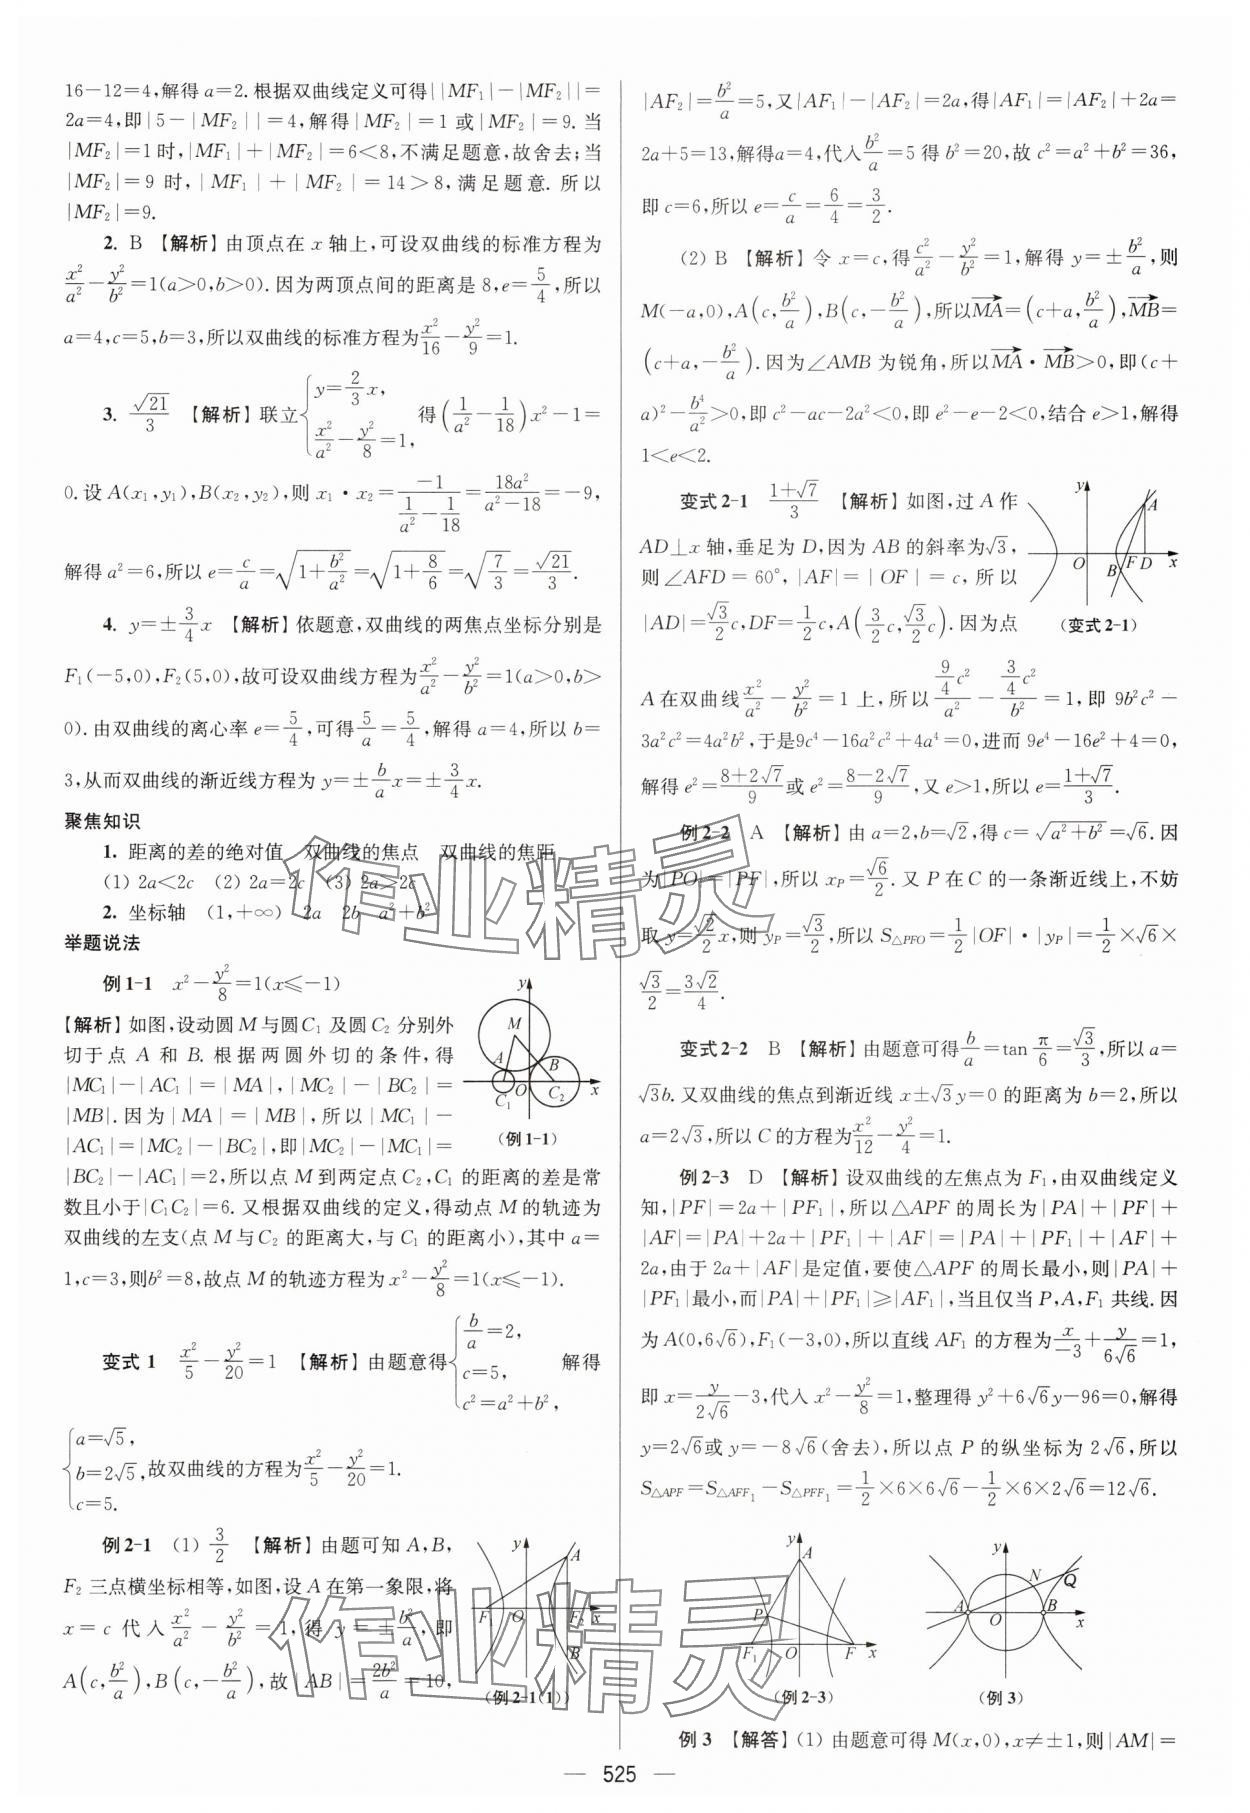 16-12=4,解得 a=2.根据双曲线定义可得||MF₁|-|MF₂||=
2a=4,即|5-|MF₂||=4,解得|MF₂|=1或|MF₂|=9.当
|MF₂|=1时,|MF₁|+|MF₂|=6<8,不满足题意,故舍去;当
|MF₂|=9 时,|MF₁|+|MF₂|=14>8,满足题意.所以
|MF₂|=9.
2. B 【解析】由顶点在 x 轴上,可设双曲线的标准方程为
x²/a²-y²/b²=1(a>0,b>0).因为两顶点间的距离是 8,e=5/4,所以
a=4,c=5,b=3,所以双曲线的标准方程为x²/16-y²/9=1.
3. √21/3 【解析】联立{y=2/3x, x²/a²-y²/8=1, 得(1/a²-1/18)x²-1=
0.设 A(x₁,y₁),B(x₂,y₂),则 x₁·x₂=-1/(1/a²-1/18)=18a²/(a²-18)=-9,
解得 a²=6,所以 e=c/a=√(1+b²/a²)=√(1+8/6)=√(7/3)=√21/3.
4. y=±3/4x 【解析】依题意,双曲线的两焦点坐标分别是
F₁(-5,0),F₂(5,0),故可设双曲线方程为x²/a²-y²/b²=1(a>0,b>
0).由双曲线的离心率 e=5/4,可得5/a=5/4,解得 a=4,所以 b=
3,从而双曲线的渐近线方程为 y=±b/a x=±3/4x.
聚焦知识
1. 距离的差的绝对值 双曲线的焦点 双曲线的焦距
(1) 2a<2c (2) 2a=2c (3) 2a>2c
2. 坐标轴 (1,+∞) 2a 2b a²+b²
举题说法
例 1-1 x²-y²/8=1(x≤-1)
【解析】如图,设动圆 M 与圆C₁ 及圆 C₂ 分别外
切于点 A 和 B.根据两圆外切的条件,得
|MC₁|-|AC₁|=|MA|,|MC₂|-|BC₂|=
|MB|.因为|MA|=|MB|,所以|MC₁|-
|AC₁|=|MC₂|-|BC₂|,即|MC₂|-|MC₁|=
y M A B C₁ C₂ x
(例 1-1)
|BC₂|-|AC₁|=2,所以点 M 到两定点 C₂,C₁ 的距离的差是常
数且小于|C₁C₂|=6.又根据双曲线的定义,得动点 M 的轨迹为
双曲线的左支(点 M 与 C₂ 的距离大,与 C₁ 的距离小),其中 a=
1,c=3,则b²=8,故点 M 的轨迹方程为 x²-y²/8=1(x≤-1).
变式 1 x²/5-y²/20=1 【解析】由题意得{b/a=2, c=5, c²=a²+b², 解得
{a=√5, b=2√5, c=5. 故双曲线的方程为x²/5-y²/20=1.
例 2-1 (1) 3/2 【解析】由题可知 A,B,
F₂ 三点横坐标相等,如图,设 A 在第一象限,将
x=c 代入x²/a²-y²/b²=1,得 y=±b²/a,即
A(c,b²/a),B(c,-b²/a),故|AB|=2b²/a=10,
y A F₁ O F₂ x B
(例 2-1(1))
|AF₂|=b²/a=5,又|AF₁|-|AF₂|=2a,得|AF₁|=|AF₂|+2a=
2a+5=13,解得a=4,代入b²/a=5 得 b²=20,故 c²=a²+b²=36,
即 c=6,所以 e=c/a=6/4=3/2.
(2) B 【解析】令 x=c,得c²/a²-y²/b²=1,解得 y=±b²/a,则
M(-a,0),A(c,b²/a),B(c,-b²/a),所以MA→=(c+a,b²/a),MB→=
(c+a,-b²/a).因为∠AMB 为锐角,所以MA→·MB→>0,即(c+
a)²-b⁴/a²>0,即 c²-ac-2a²<0,即 e²-e-2<0,结合 e>1,解得
1<e<2.
变式 2-1 (1+√7)/3 【解析】如图,过 A 作
AD⊥x 轴,垂足为 D,因为 AB 的斜率为√3,
则∠AFD=60°,|AF|=|OF|=c,所以
|AD|=√3/2c,DF=1/2c,A(3/2c,√3/2c).因为点
y A O B F D x
(变式 2-1)
A 在双曲线x²/a²-y²/b²=1 上,所以(9/4c²)/a²-(3/4c²)/b²=1,即 9b²c²-
3a²c²=4a²b²,于是9c⁴-16a²c²+4a⁴=0,进而 9e⁴-16e²+4=0,
解得 e²=(8+2√7)/9或 e²=(8-2√7)/9,又 e>1,所以 e=(1+√7)/3.
例 2-2 A 【解析】由 a=2,b=√2,得 c=√(a²+b²)=√6.因
为|PO|=|PF|,所以 x_P=√6/2.又 P 在 C 的一条渐近线上,不妨
取 y=√2/2x,则 y_P=√3/2,所以 S△PFO=1/2|OF|·|y_P|=1/2×√6×
√3/2=3√2/4.
变式 2-2 B 【解析】由题意可得b/a=tanπ/6=√3/3,所以 a=
√3b.又双曲线的焦点到渐近线 x±√3y=0 的距离为 b=2,所以
a=2√3,所以 C 的方程为x²/12-y²/4=1.
例 2-3 D 【解析】设双曲线的左焦点为 F₁,由双曲线定义
知,|PF|=2a+|PF₁|,所以△APF 的周长为|PA|+|PF|+
|AF|=|PA|+2a+|PF₁|+|AF|=|PA|+|PF₁|+|AF|+
2a,由于 2a+|AF|是定值,要使△APF 的周长最小,则|PA|+
|PF₁|最小,而|PA|+|PF₁|≥|AF₁|,当且仅当 P,A,F₁ 共线.因
为 A(0,6√6),F₁(-3,0),所以直线 AF₁ 的方程为x/-3+y/6√6=1,
即 x=y/2√6-3,代入 x²-y²/8=1,整理得 y²+6√6y-96=0,解得
y=2√6或 y=-8√6(舍去),所以点 P 的纵坐标为 2√6,所以
S△APF=S△AFF₁-S△PFF₁=1/2×6×6√6-1/2×6×2√6=12√6.
y A P F₁ O F x
(例 2-3)
y N Q A O B x
(例 3)
例 3 【解答】(1) 由题意可得 M(x,0),x≠±1,则|AM|=
— 525 —
作业精灵
作业精灵